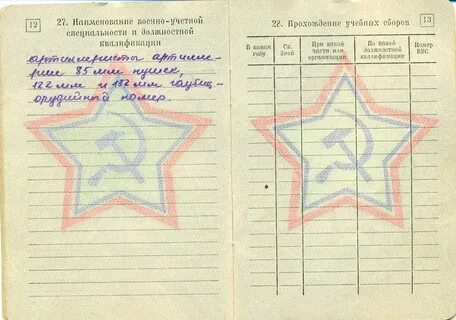 12
27. Наименование военно-учетной
специальности и должностной
квалификации
артиллеристы артилле-
рии 85 мм пушек,
122 мм и 152 мм гаубиц
орудийный номер.
28. Прохождение учебных сборов
13
В каком году
Ск. дней
При какой части или организации
По какой должностной квалификации
Номер ВУС